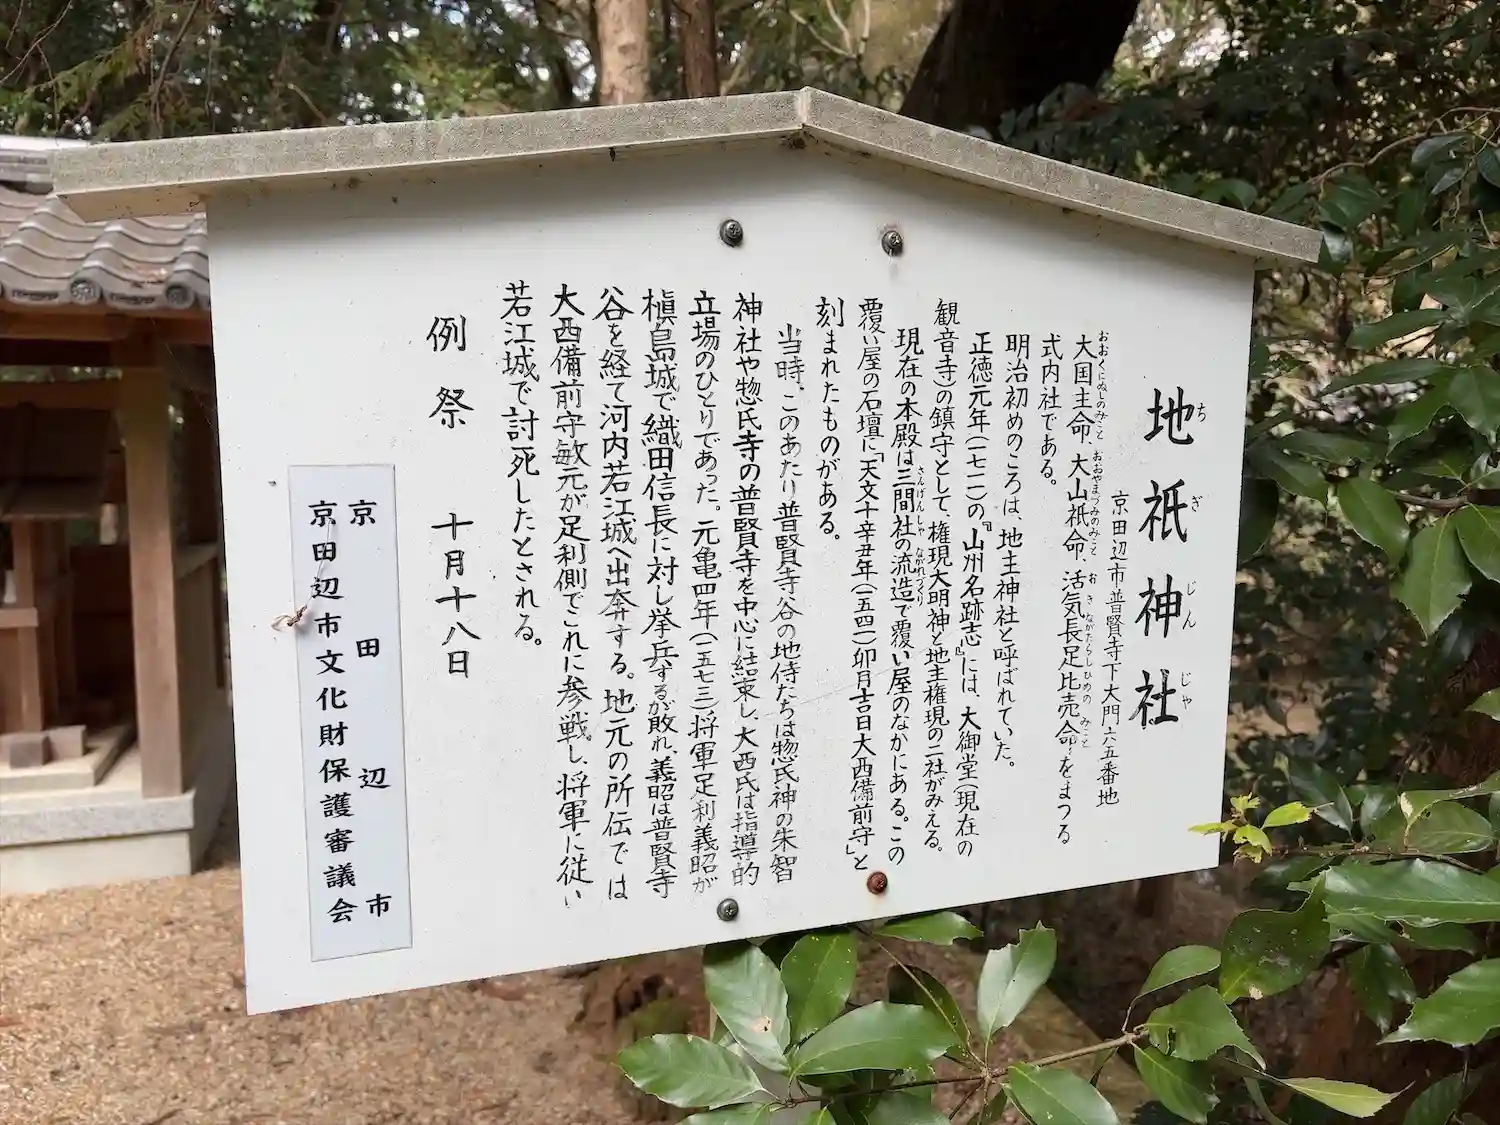 地祇神社
京田辺市普賢寺下大門六五番地
大国主命、大山祇命、活気長足比売命をまつる
式内社である。
明治初めのころは、地主神社と呼ばれていた。
正徳元年(一七一一)の『山州名跡志』には、大御堂(現在の
観音寺)の鎮守として、権現大明神と地主権現の二社がみえる。
現在の本殿は三間社の流造で覆い屋のなかにある。この
覆い屋の石壇に「天文十辛丑年(一五四一)卯月吉日大西備前守」と
刻まれたものがある。
当時、このあたり普賢寺谷の地侍たちは惣氏神の朱智
神社や惣氏寺の普賢寺を中心に結束し、大西氏は指導的
立場のひとりであった。元亀四年(一五七三)将軍足利義昭が
槇島城で織田信長に対し挙兵するが敗れ、義昭は普賢寺
谷を経て河内若江城へ出奔する。地元の所伝では
大西備前守敏元が足利側でこれに参戦し、将軍に従い
若江城で討死したとされる。
例祭 十月十八日
京田辺市
京田辺市文化財保護審議会